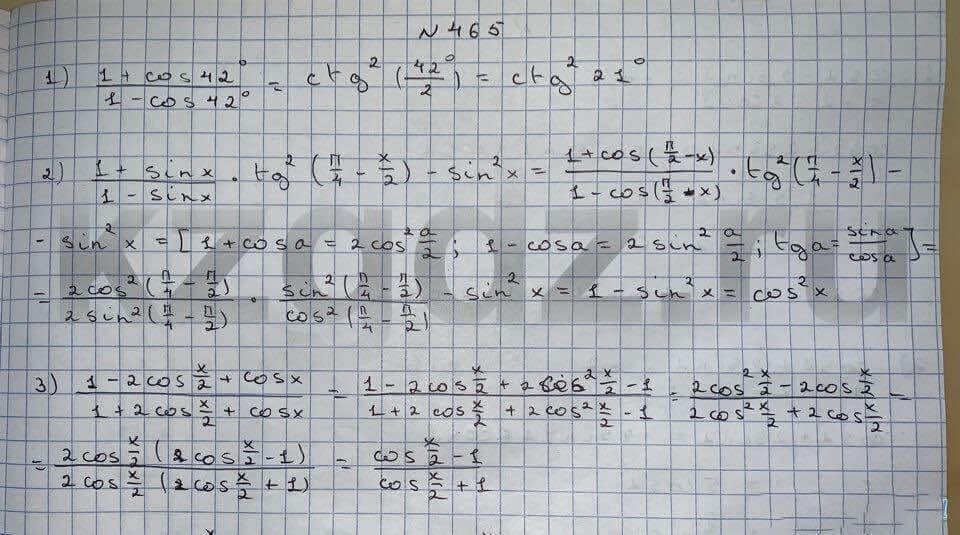 N 465
1) (1 + cos 42°)/(1 - cos 42°) = ctg² (42°/2) = ctg² 21°
2) (1 + sin x)/(1 - sin x) · tg² (π/4 - x/2) - sin² x = (1 + cos (π/2 - x))/(1 - cos (π/2 - x)) · tg² (π/4 - x/2) -
- sin² x = [1 + cos a = 2 cos² a/2 ; 1 - cos a = 2 sin² a/2 ; tg a = sin a/cos a] =
= (2 cos² (π/4 - π/2))/(2 sin² (π/4 - π/2)) · (sin² (π/4 - π/2))/(cos² (π/4 - π/2)) - sin² x = 1 - sin² x = cos² x
3) (1 - 2 cos x/2 + cos x)/(1 + 2 cos x/2 + cos x) = (1 - 2 cos x/2 + 2 cos² x/2 - 1)/(1 + 2 cos x/2 + 2 cos² x/2 - 1) = (2 cos² x/2 - 2 cos x/2)/(2 cos² x/2 + 2 cos x/2) =
= (2 cos x/2 (2 cos x/2 - 1))/(2 cos x/2 (2 cos x/2 + 1)) = (cos x/2 - 1)/(cos x/2 + 1)
kzgdz.ru